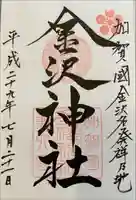 加賀國金沢市発祥乃地
金沢神社
平成二十九年七月二十一日